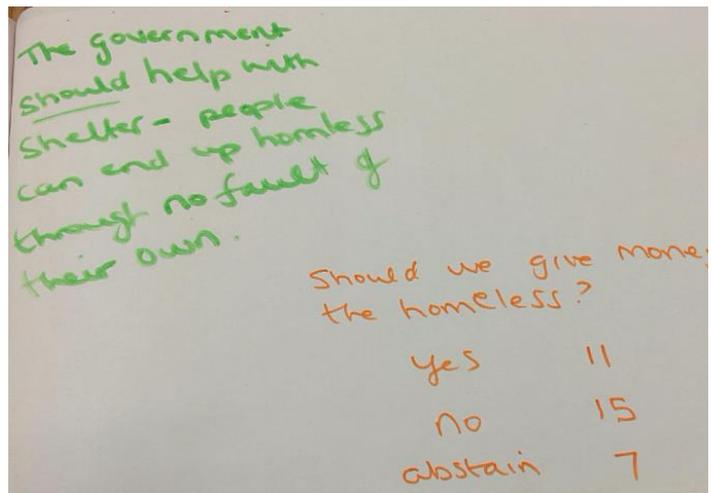 The government
should help with
shelter - people
can end up homless
through no fault of
their own.
Should we give mone
the homeless?
yes 11
no 15
abstain 7